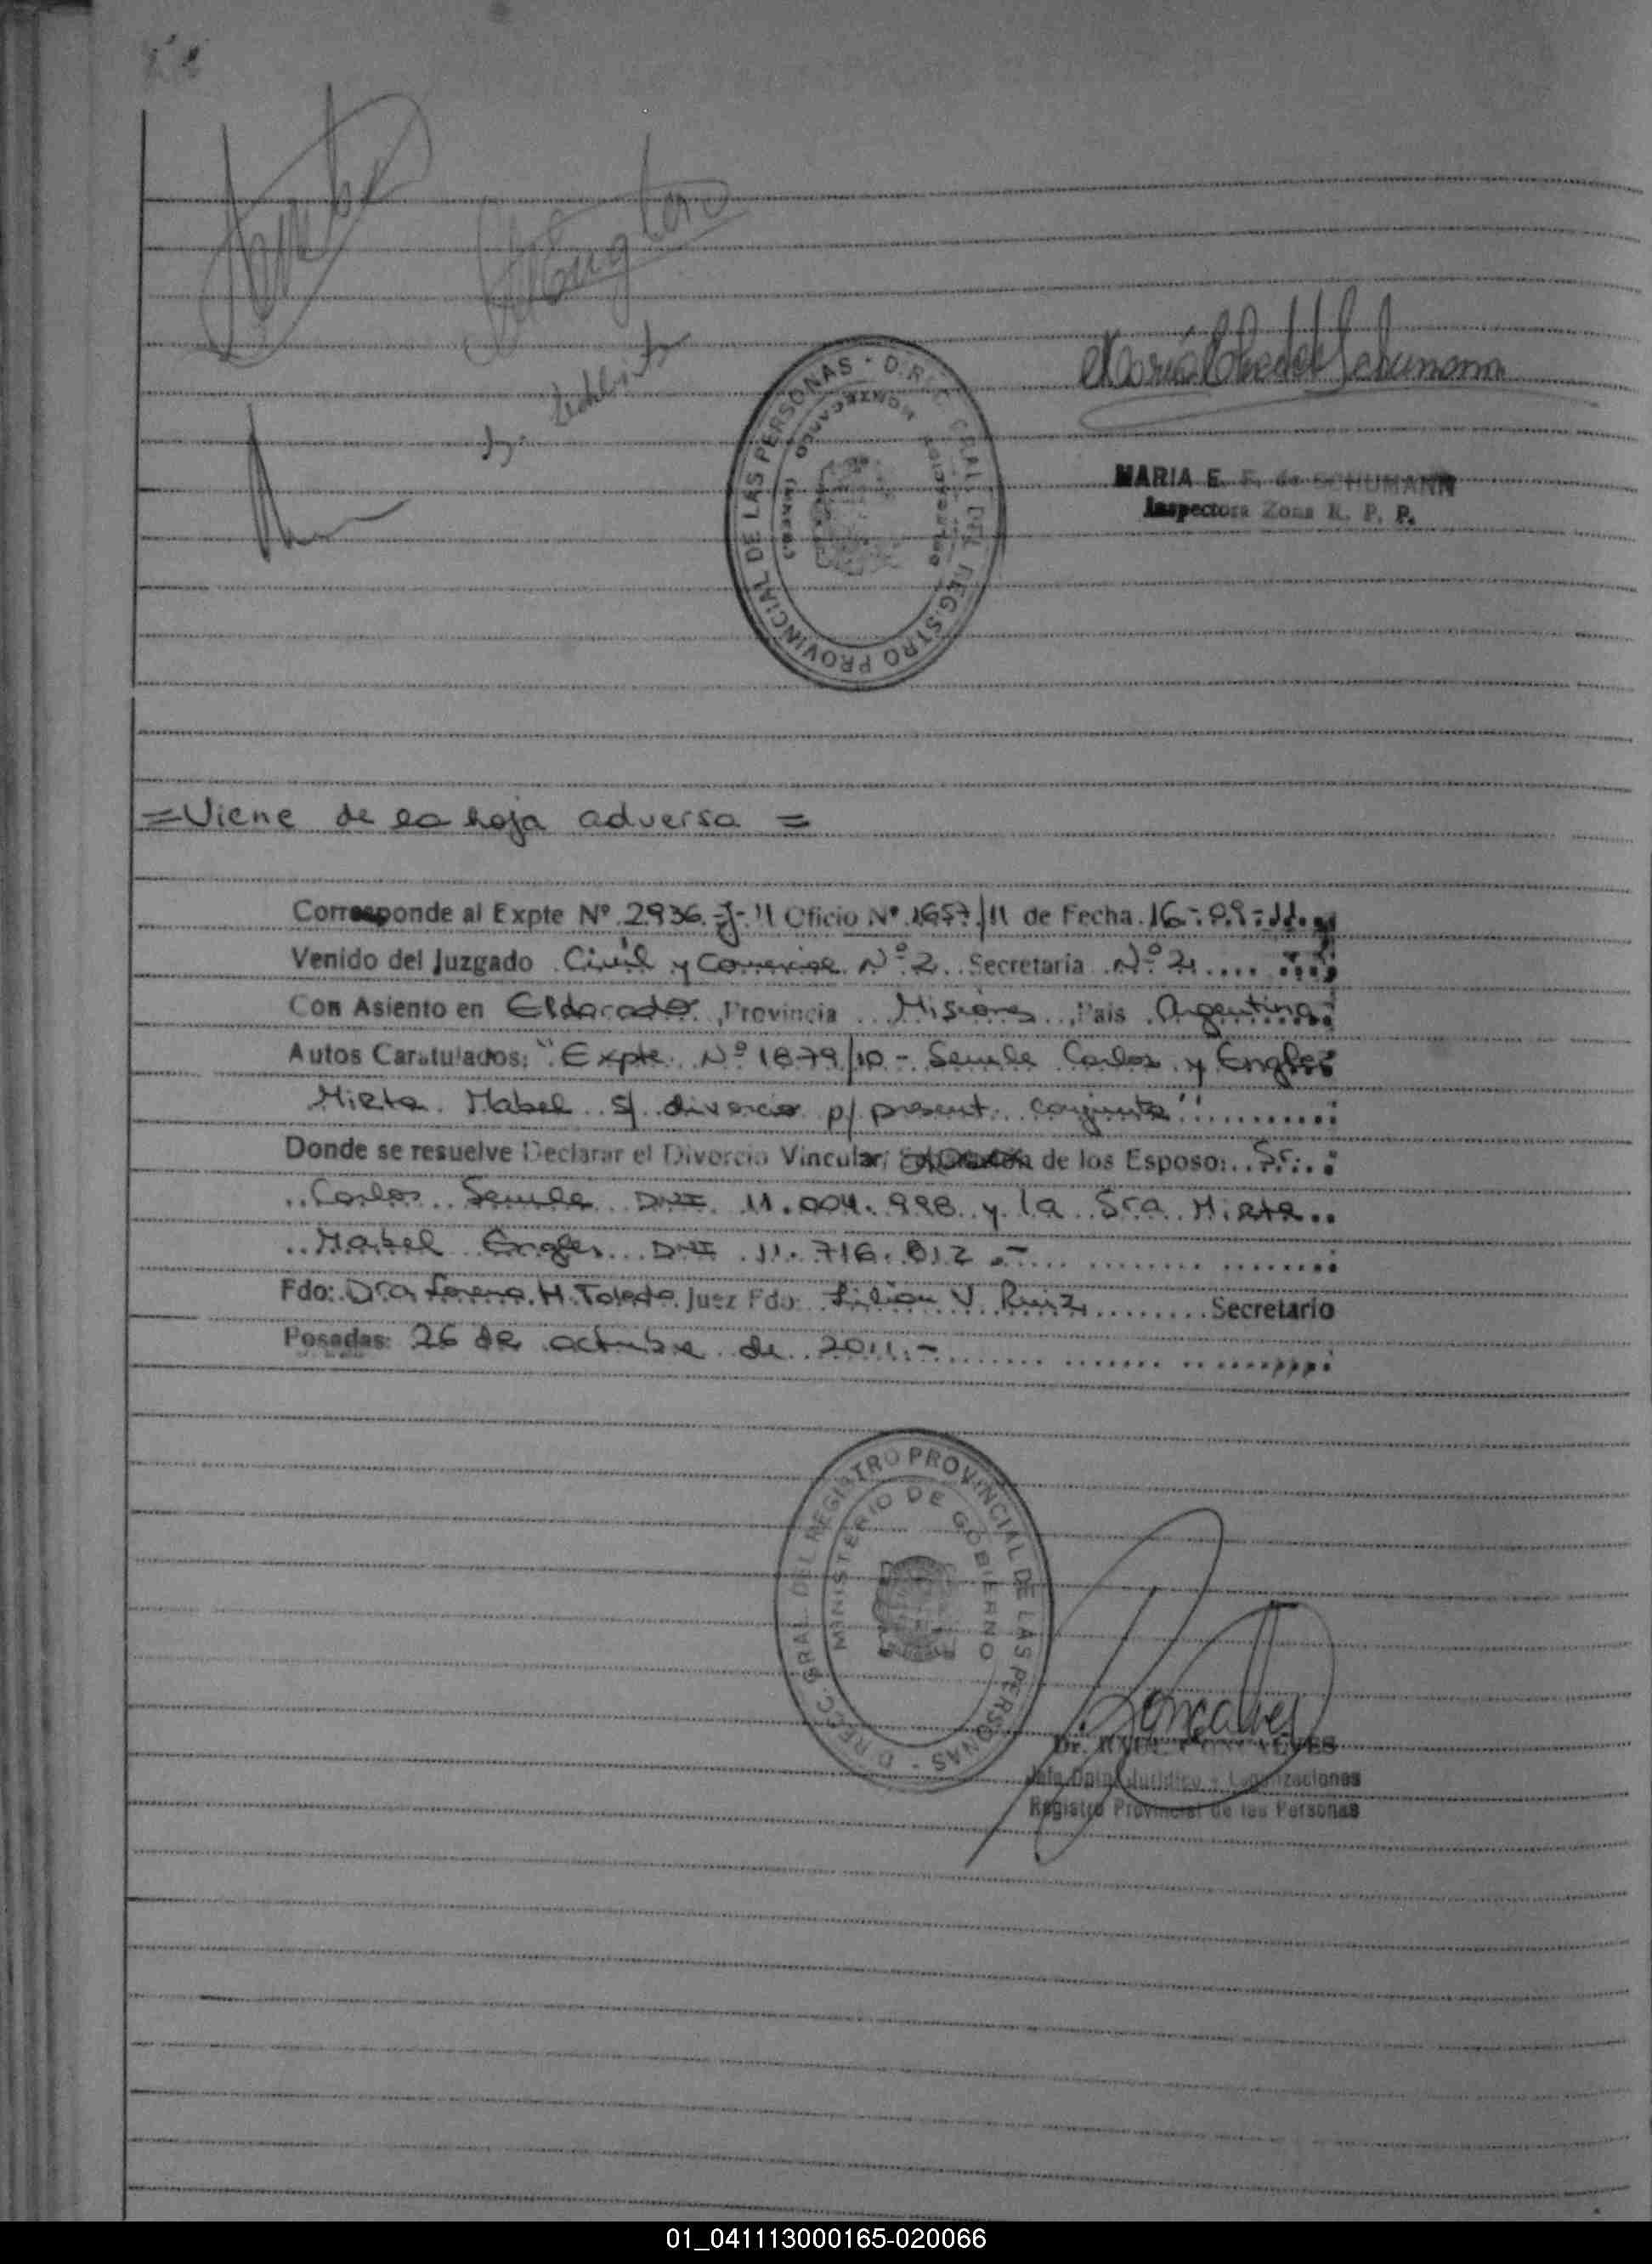 DIREC. GRAL. DEL REGISTRO PROVINCIAL DE LAS PERSONAS
MARIA E. F. de SCHUMANN
Inspectora Zona R. P. P.
= Viene de la hoja adversa =
Corresponde al Expte Nº 2936-J-11 Oficio Nº 1657/11 de Fecha 16-09-11
Venido del Juzgado Civil y Comercial Nº 2 Secretaria Nº 2
Con Asiento en Eldorado, Provincia Misiones, Pais Argentina
Autos Caratulados: "Expte. Nº 1879/10 - Carlos y Engler
Mirta Mabel s/ divorcio p/ present. conjunta"
Donde se resuelve Declarar el Divorcio Vincular, de los Esposo: Sr.
Carlos DNI 11.004.998 y la Sra Mirta
Mabel Engler DNI 11.716.812.-
Fdo: Dra Lorena H. Toledo Juez Fdo: Lilian V. Ruiz Secretario
Posadas: 26 de octubre de 2011.-
DIREC. GRAL. DEL REGISTRO PROVINCIAL DE LAS PERSONAS
MINISTERIO DE GOBIERNO
Dr. RAUL GONCALVES
Jefe Dpto. Jurídico - Legalizaciones
Registro Provincial de las Personas
01_041113000165-020066